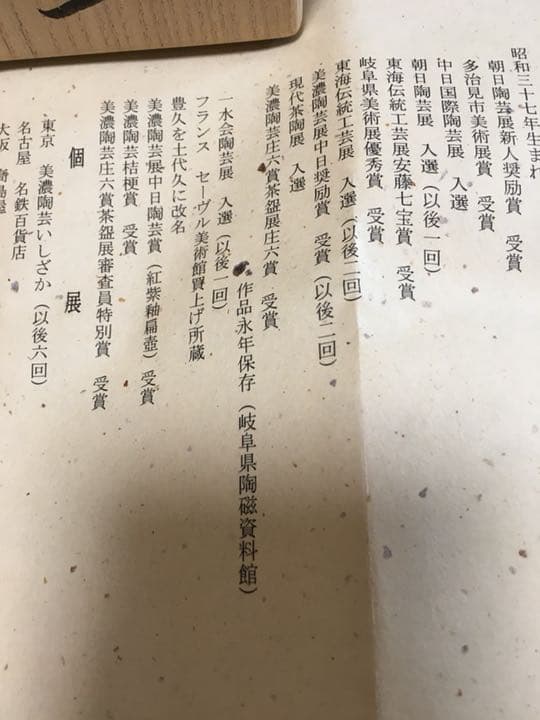 昭和三十七年生まれ
朝日陶芸展新人奨励賞 受賞
多治見市美術展賞 受賞
中日国際陶芸展 入選
朝日陶芸展 入選（以後一回）
東海伝統工芸展安藤七宝賞 受賞
岐阜県美術展優秀賞 受賞
東海伝統工芸展 入選（以後二回）
美濃陶芸展中日奨励賞 受賞（以後二回）
現代茶陶展 入選
美濃陶芸庄六賞茶盌展庄六賞 受賞
作品永年保存（岐阜県陶磁資料館）
一水会陶芸展 入選（以後一回）
フランス セーヴル美術館買上げ所蔵
豊久を土代久に改名
美濃陶芸展中日陶芸賞（紅紫釉扁壺）受賞
美濃陶芸桔梗賞 受賞
美濃陶芸庄六賞茶盌展審査員特別賞 受賞
個展
東京 美濃陶芸いしざか（以後六回）
名古屋 名鉄百貨店
大阪 髙島屋